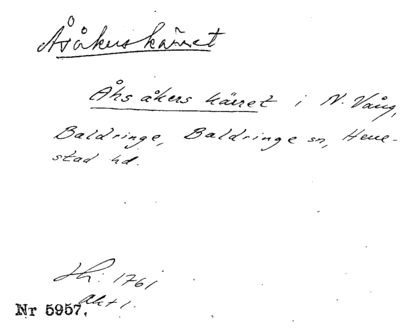 Åsåkerskärret
Åhs åkers kärret i N. Vång,
Baldringe, Baldringe sn, Herre-
stad hd.
Sk: 1761
Akt 1.
Nr 5957.